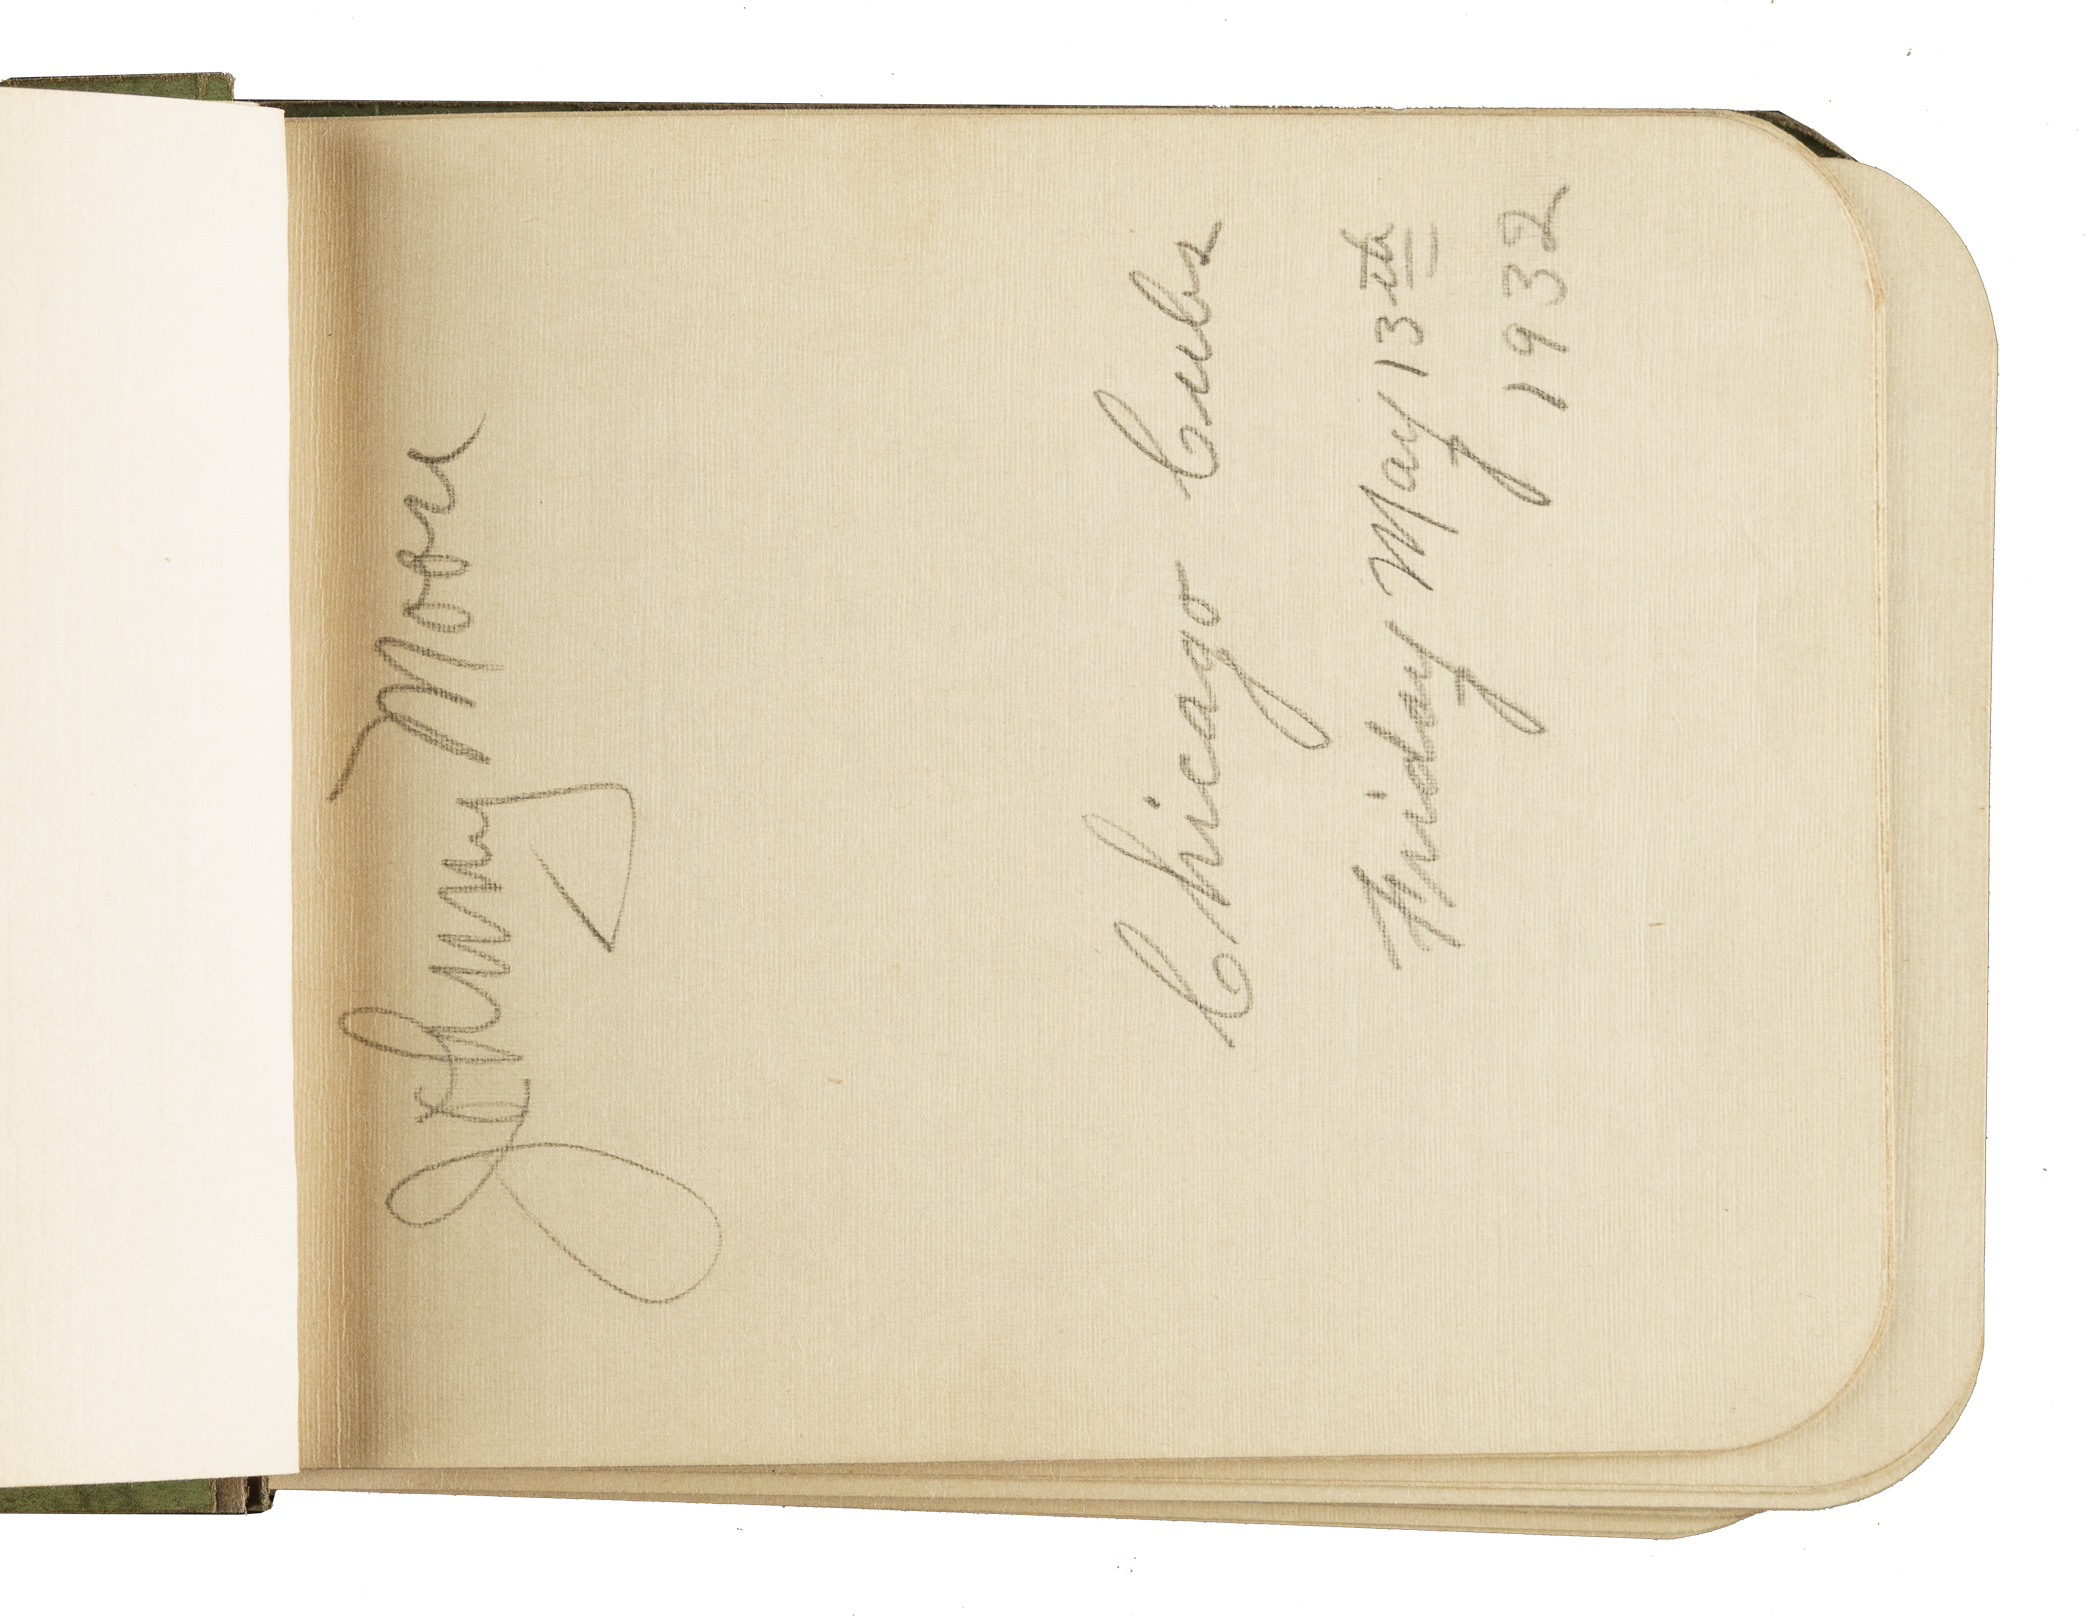 Johnny Moore
Chicago Cubs
Friday May 13th
1932